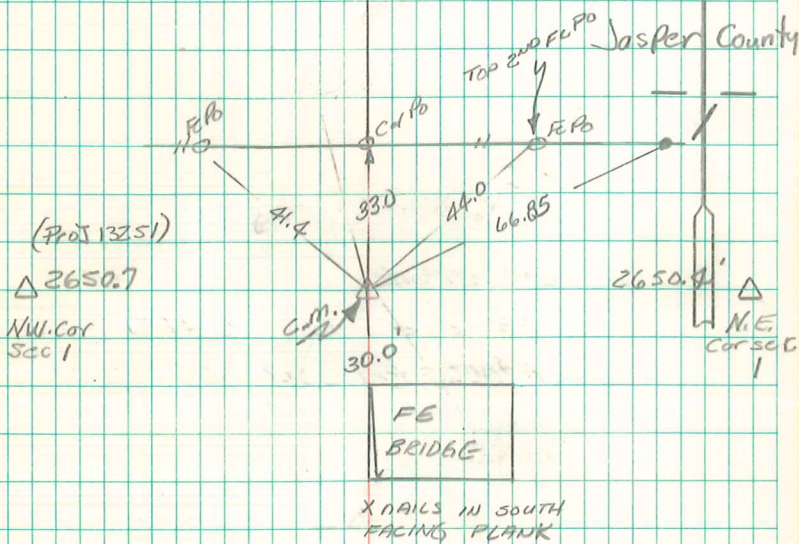 Jasper County
TOP 2ND FCPO
FCPO
CorPo
FCPO
41.4
33.0
44.0
66.85
(PROJ 13251)
△ 2650.7
NW.Cor
Sec 1
C.M.
30.0'
△
N.E.
Cor sec
1
FE
BRIDGE
X NAILS IN SOUTH
FACING PLANK